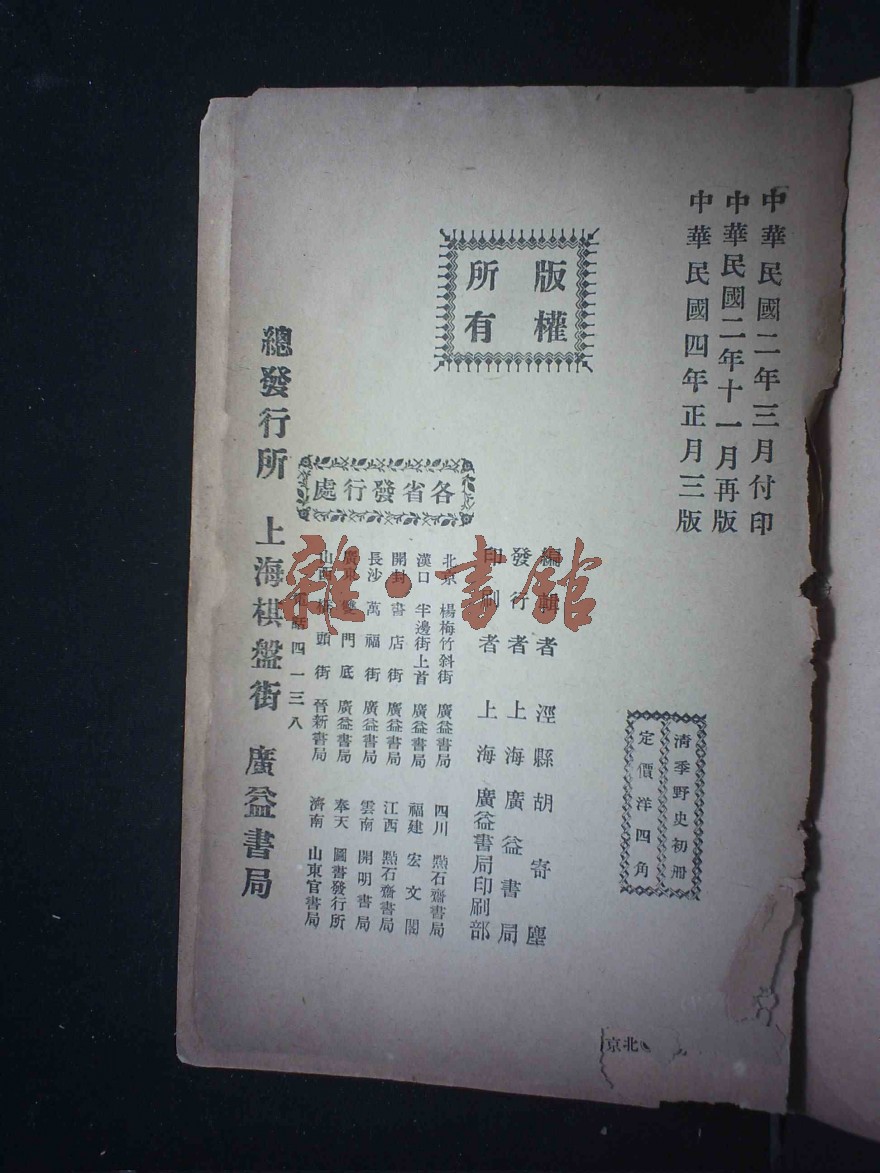 中華民國二年三月付印
中華民國二年十一月再版
中華民國四年正月三版
版權
所有
清季野史初册
定價洋四角
編輯者 涇縣胡寄塵
發行者 上海廣益書局
印刷者 上海廣益書局印刷部
各省發行處
北京 楊梅竹斜街 廣益書局 四川 點石齋書局
漢口 半邊街上首 廣益書局 福建 宏文閣
開封 書店街 廣益書局 江西 點石齋書局
長沙 萬福街 廣益書局 雲南 開明書局
廣東 雙門底 廣益書局 奉天 圖書發行所
山西 橋頭街 晉新書局 濟南 山東官書局
電話四一三八
總發行所 上海棋盤街 廣益書局
雜·書館
北京